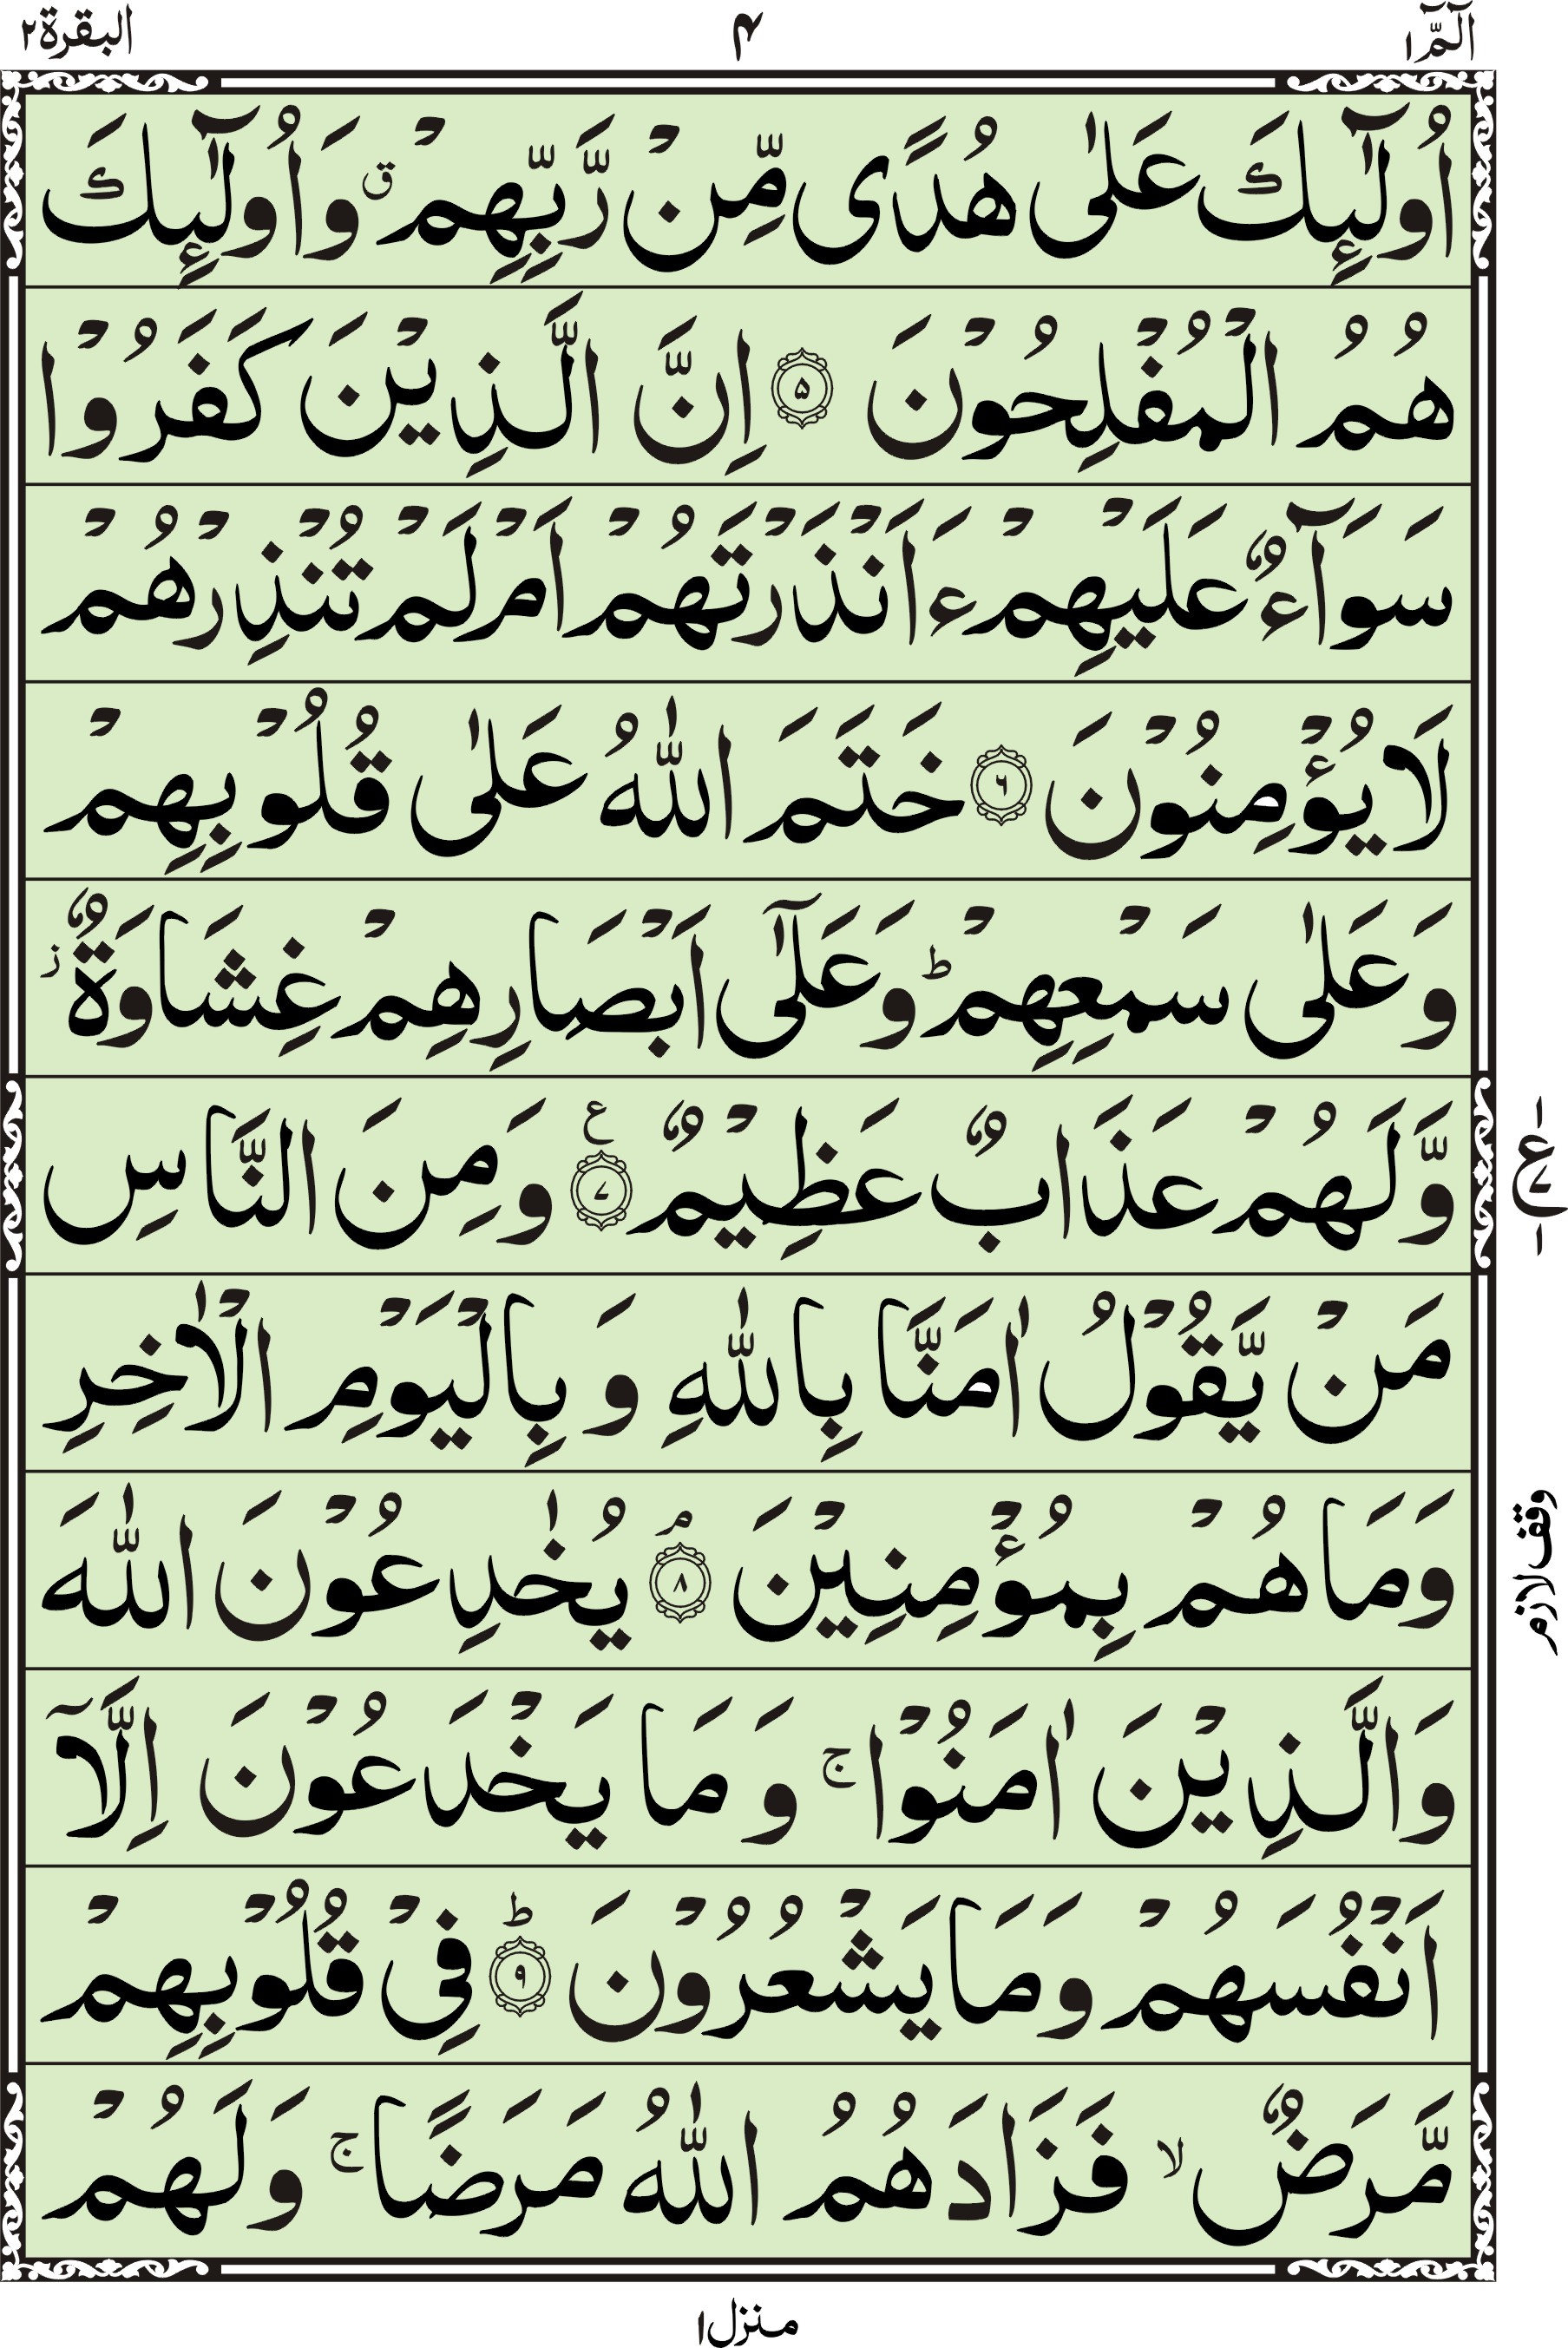 الٓمّٓ ١ ۴ البقرة ٢
اُولٰٓئِكَ عَلٰی هُدًی مِّنْ رَّبِّهِمْ ۗ وَاُولٰٓئِكَ
هُمُ الْمُفْلِحُوْنَ ۵ اِنَّ الَّذِیْنَ كَفَرُوْا
سَوَآءٌ عَلَیْهِمْ ءَاَنْذَرْتَهُمْ اَمْ لَمْ تُنْذِرْهُمْ
لَا یُؤْمِنُوْنَ ۶ خَتَمَ اللّٰهُ عَلٰی قُلُوْبِهِمْ
وَعَلٰی سَمْعِهِمْ ؕ وَعَلٰۤی اَبْصَارِهِمْ غِشَاوَةٌ ز
وَّلَهُمْ عَذَابٌ عَظِیْمٌ ۷ ع وَمِنَ النَّاسِ
مَنْ یَّقُوْلُ اٰمَنَّا بِاللّٰهِ وَبِالْیَوْمِ الْاٰخِرِ
وَمَا هُمْ بِمُؤْمِنِیْنَ ۸ م یُخٰدِعُوْنَ اللّٰهَ
وَالَّذِیْنَ اٰمَنُوْا ۚ وَمَا یَخْدَعُوْنَ اِلَّاۤ
اَنْفُسَهُمْ وَمَا یَشْعُرُوْنَ ۹ ؕ فِیْ قُلُوْبِهِمْ
مَّرَضٌ ۙ فَزَادَهُمُ اللّٰهُ مَرَضًا ۚ وَلَهُمْ
١ ع ٧ ١
وقف لازم
منزل ١